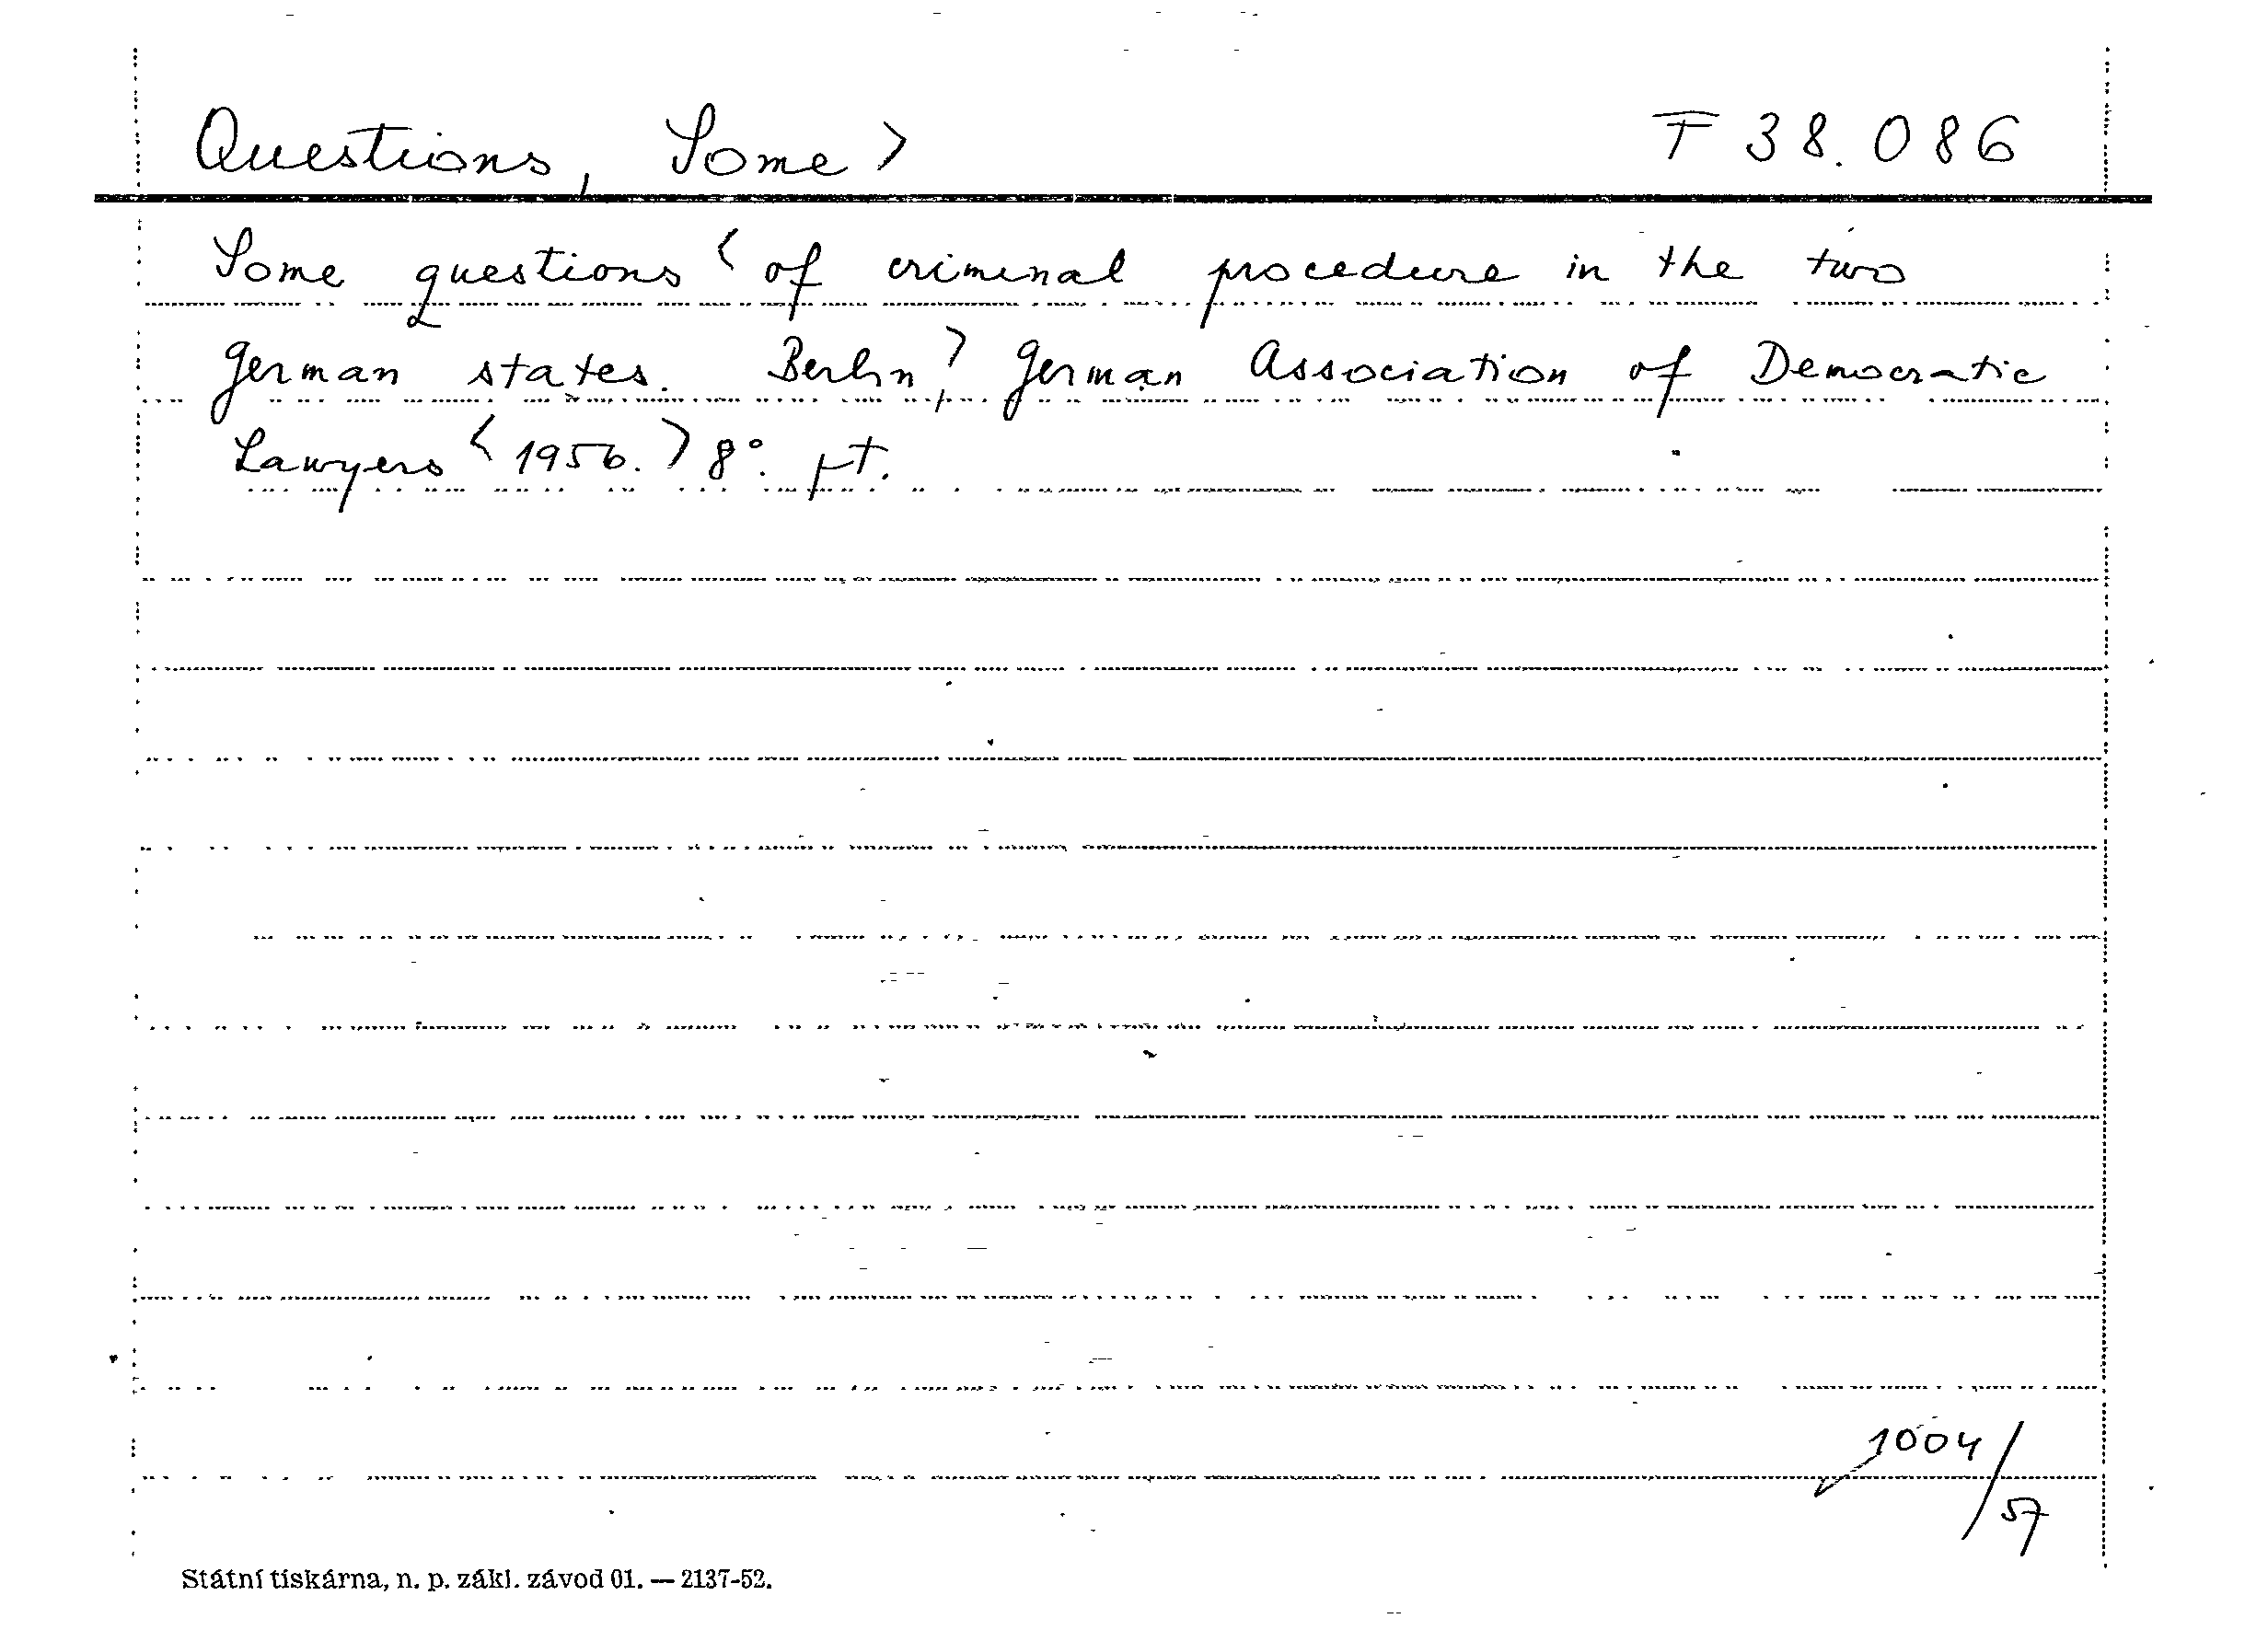 Questions, Some > F 38.086
Some questions < of criminal procedure in the two
German states. Berlin, > German Association of Democratic
Lawyers < 1956. > 8°. pt.
1004/57
Státní tiskárna, n. p. zákl. závod 01. — 2137-52.